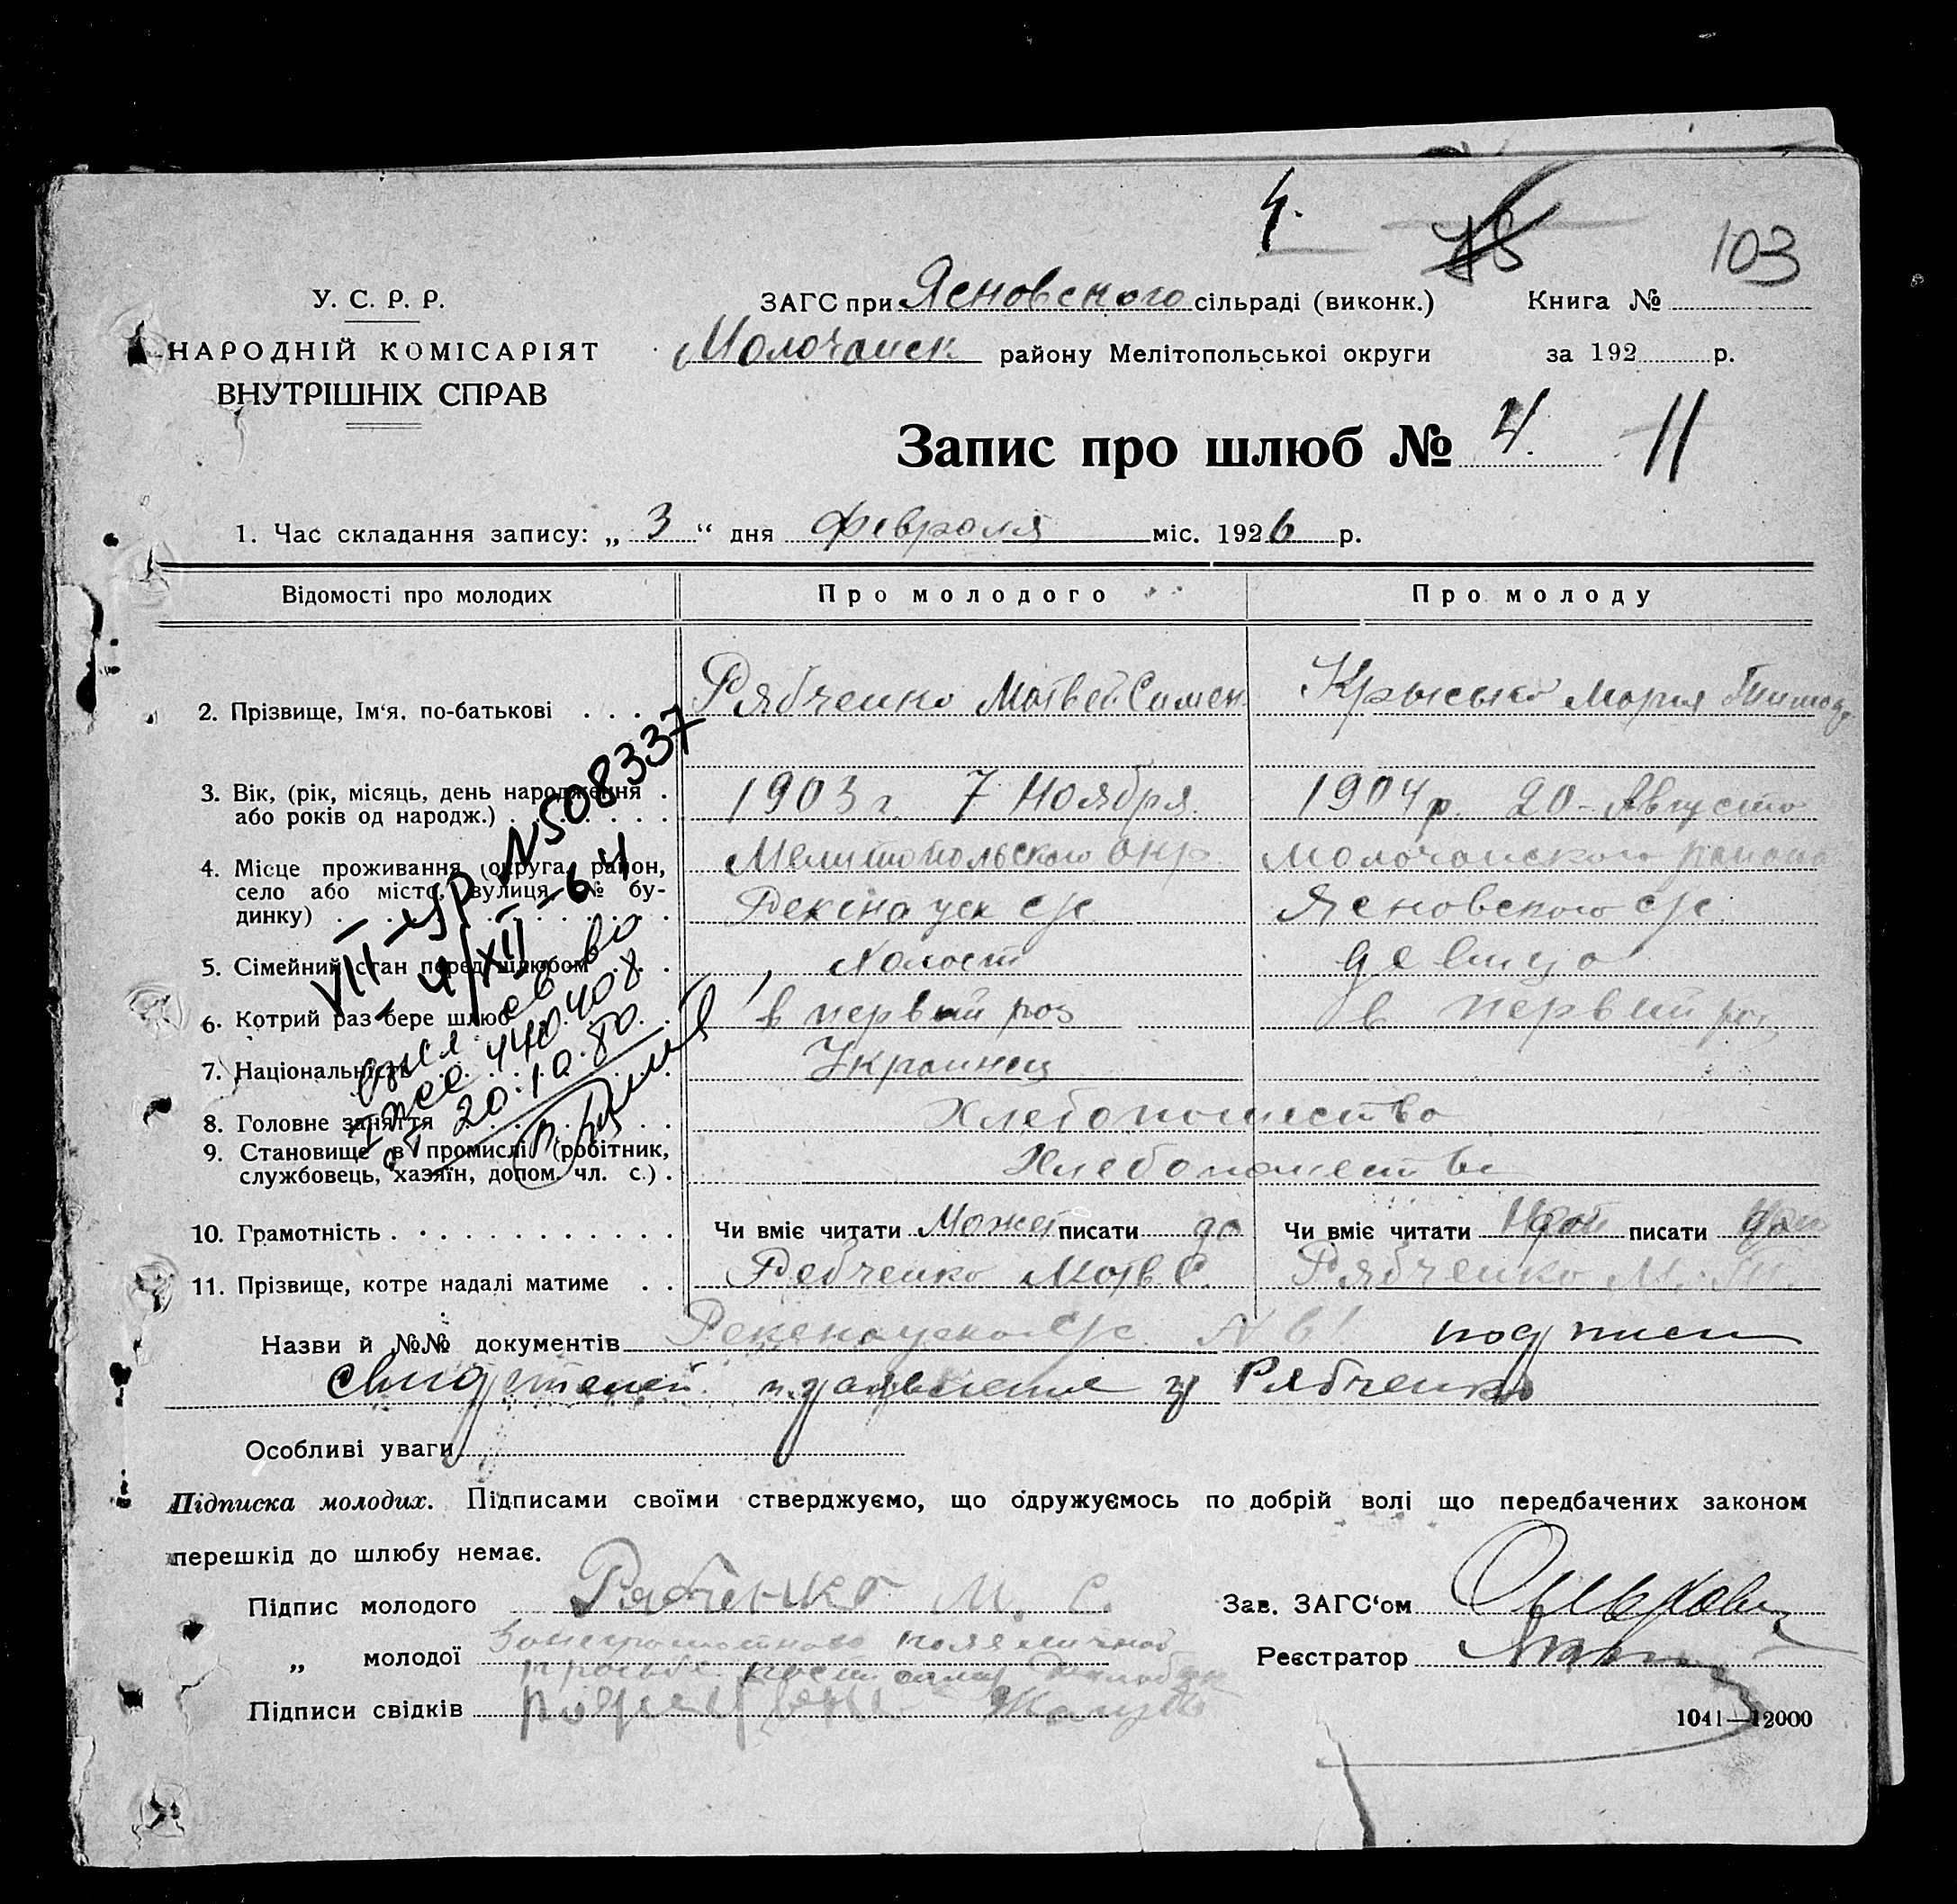 4.
18
103
У. С. Р. Р.
ЗАГС при Ясновского сільраді (виконк.) Книга №
НАРОДНІЙ КОМІСАРІЯТ
Молочанск району Мелітопольської округи за 192 р.
ВНУТРІШНІХ СПРАВ
Запис про шлюб № 4. 11
1. Час складання запису: „ 3 “ дня февроля міс. 1926 р.
Відомості про молодих Про молодого Про молоду
2. Прізвище, Ім‘я, по-батькові . . . . Рябченко Матвей Симен Крысько Мария
3. Вік, (рік, місяць, день народження .
або років од народж.) . . . . . . . 1903 г. 7 Ноября. 1904 р. 20 - Августа
4. Місце проживання (округа, район, Мелитопольского окр Молочанского района
село або місто, вулиця, № бу-
динку) . . . . . . . с/с Ясновского с/с
5. Сімейний стан перед шлюбом . . . Холост девица
6. Котрий раз бере шлюб . . . . в первый роз в первый роз
7. Національність . . . . . . Украинец
8. Головне заняття . . . . . . Хлебопашество
9. Становище в промислі (робітник,
службовець, хазяїн, допом. чл. с.) . Хлебопашество
N508337
VIII-УР
4/XII-64
440408
20.10.80.
10. Грамотність . . . . . . . . . . . . Чи вміє читати Может писати да Чи вміє читати писати
11. Прізвище, котре надалі матиме . . Ребченко Матв С. Рябченко М. Т.
Назви й №№ документів с/с N подписи
свидетелей Рябченко
Особливі уваги
Підписка молодих. Підписами своїми стверджуємо, що одружуємось по добрій волі що передбачених законом
перешкід до шлюбу немає.
Підпис молодого Рябченко М. С. Зав. ЗАГС‘ом
„ молодої Реєстратор
Підписи свідків
1041—12000